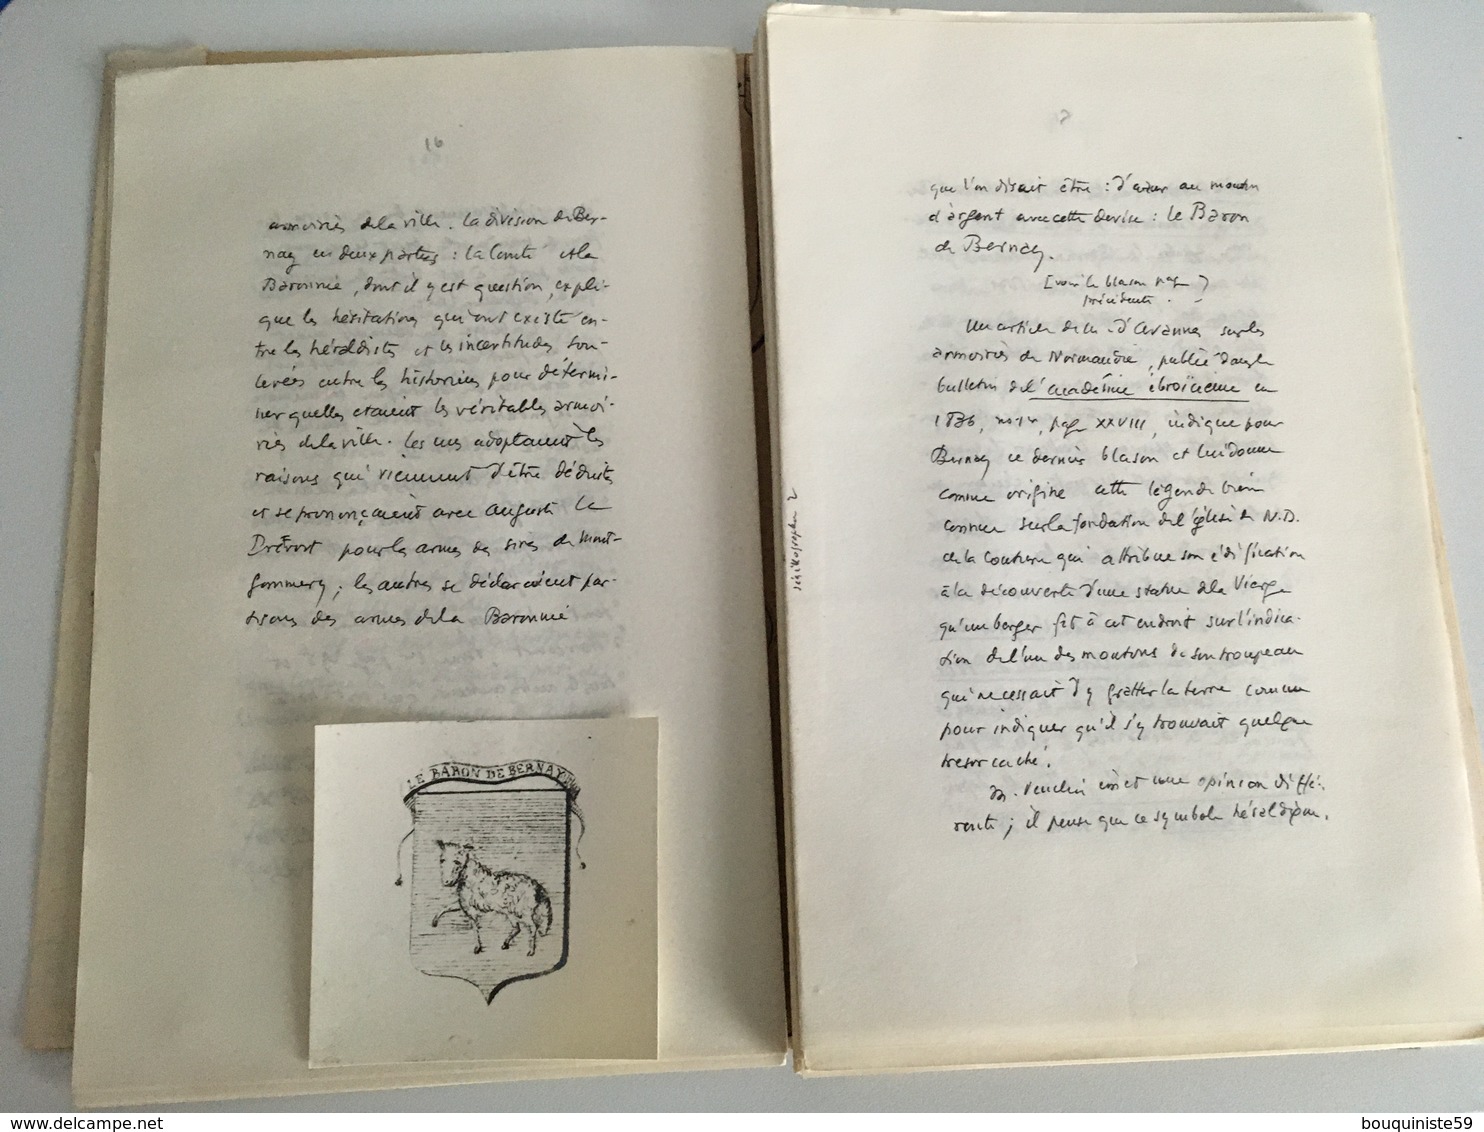 16
armoiries de la ville. La division de Ber-
nay en deux parties : la Comté et la
Baronnie, dont il y est question, expli-
que les hésitations qui ont existé en-
tre les héraldistes et les incertitudes sou-
levées entre les historiens pour détermi-
ner quelles étaient les véritables armoi-
ries de la ville. Les uns adoptaient les
raisons qui viennent d'être déduites
et se prononçaient avec Auguste Le
Prévost pour les armes des sires de Mont-
gommery ; les autres se déclaraient par-
tisans des armes de la Baronnie
LE BARON DE BERNAY
que l'on disait être : d'azur au mouton
d'argent avec cette devise : le Baron
de Bernay.
[voir le blason page
précédente.]
Un article de M. d'Avannes sur les
armoiries de Normandie, publié dans le
bulletin de l'académie ébroïcienne en
1836, no 1er, page XXVIII, indique pour
Bernay ce dernier blason et lui donne
comme origine cette légende bien
connue sur la fondation de l'église de N.D.
de la Couture qui attribue son édification
à la découverte d'une statue de la Vierge
qu'un berger fit à cet endroit sur l'indica-
tion de l'un des moutons de son troupeau
qui ne cessait d'y gratter la terre comme
pour indiquer qu'il s'y trouvait quelque
tresor caché.
M. Veuclin émet une opinion diffé-
rente ; il pense que ce symbole héraldique.
delcampe.net
bouquiniste59